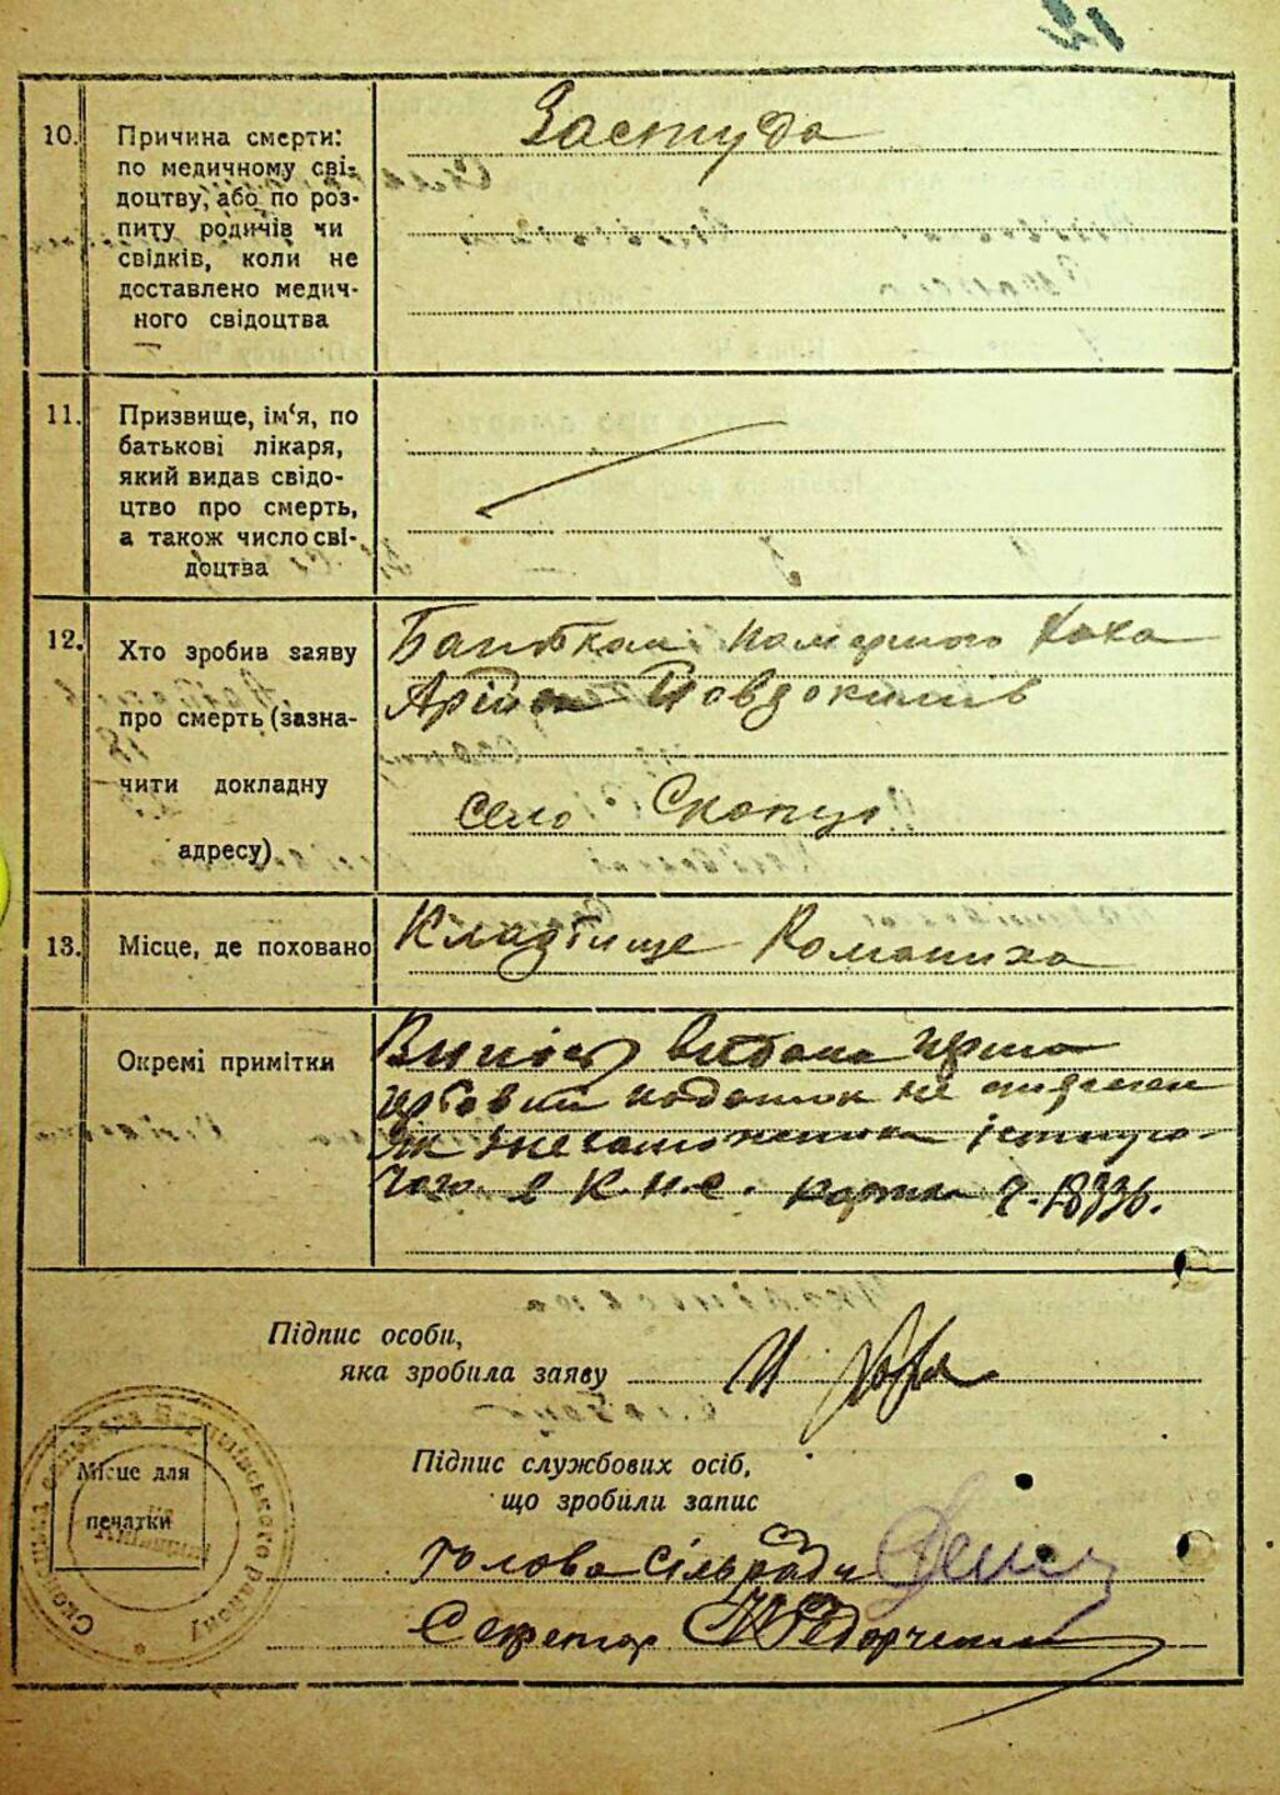 12
10. Причина смерти:
по медичному сві-
доцтву, або по роз-
питу родичів чи
свідків, коли не
доставлено медич-
ного свідоцтва
Застуда
11. Призвище, ім‘я, по
батькові лікаря,
який видав свідо-
цтво про смерть,
а також число сві-
доцтва
12. Хто зробив заяву
про смерть (зазна-
чити докладну
адресу)
Батьком помершого
Йовдокимів
село Скопці
13. Місце, де поховано
Кладбище Романиха
Окремі примітки
Випис видана
податок не
Як незаможника існую-
чого в К.н.с. картка
Підпис особи,
яка зробила заяву
Місце для
печатки
Підпис службових осіб,
що зробили запис
голова сільради
Секретар Федорченко